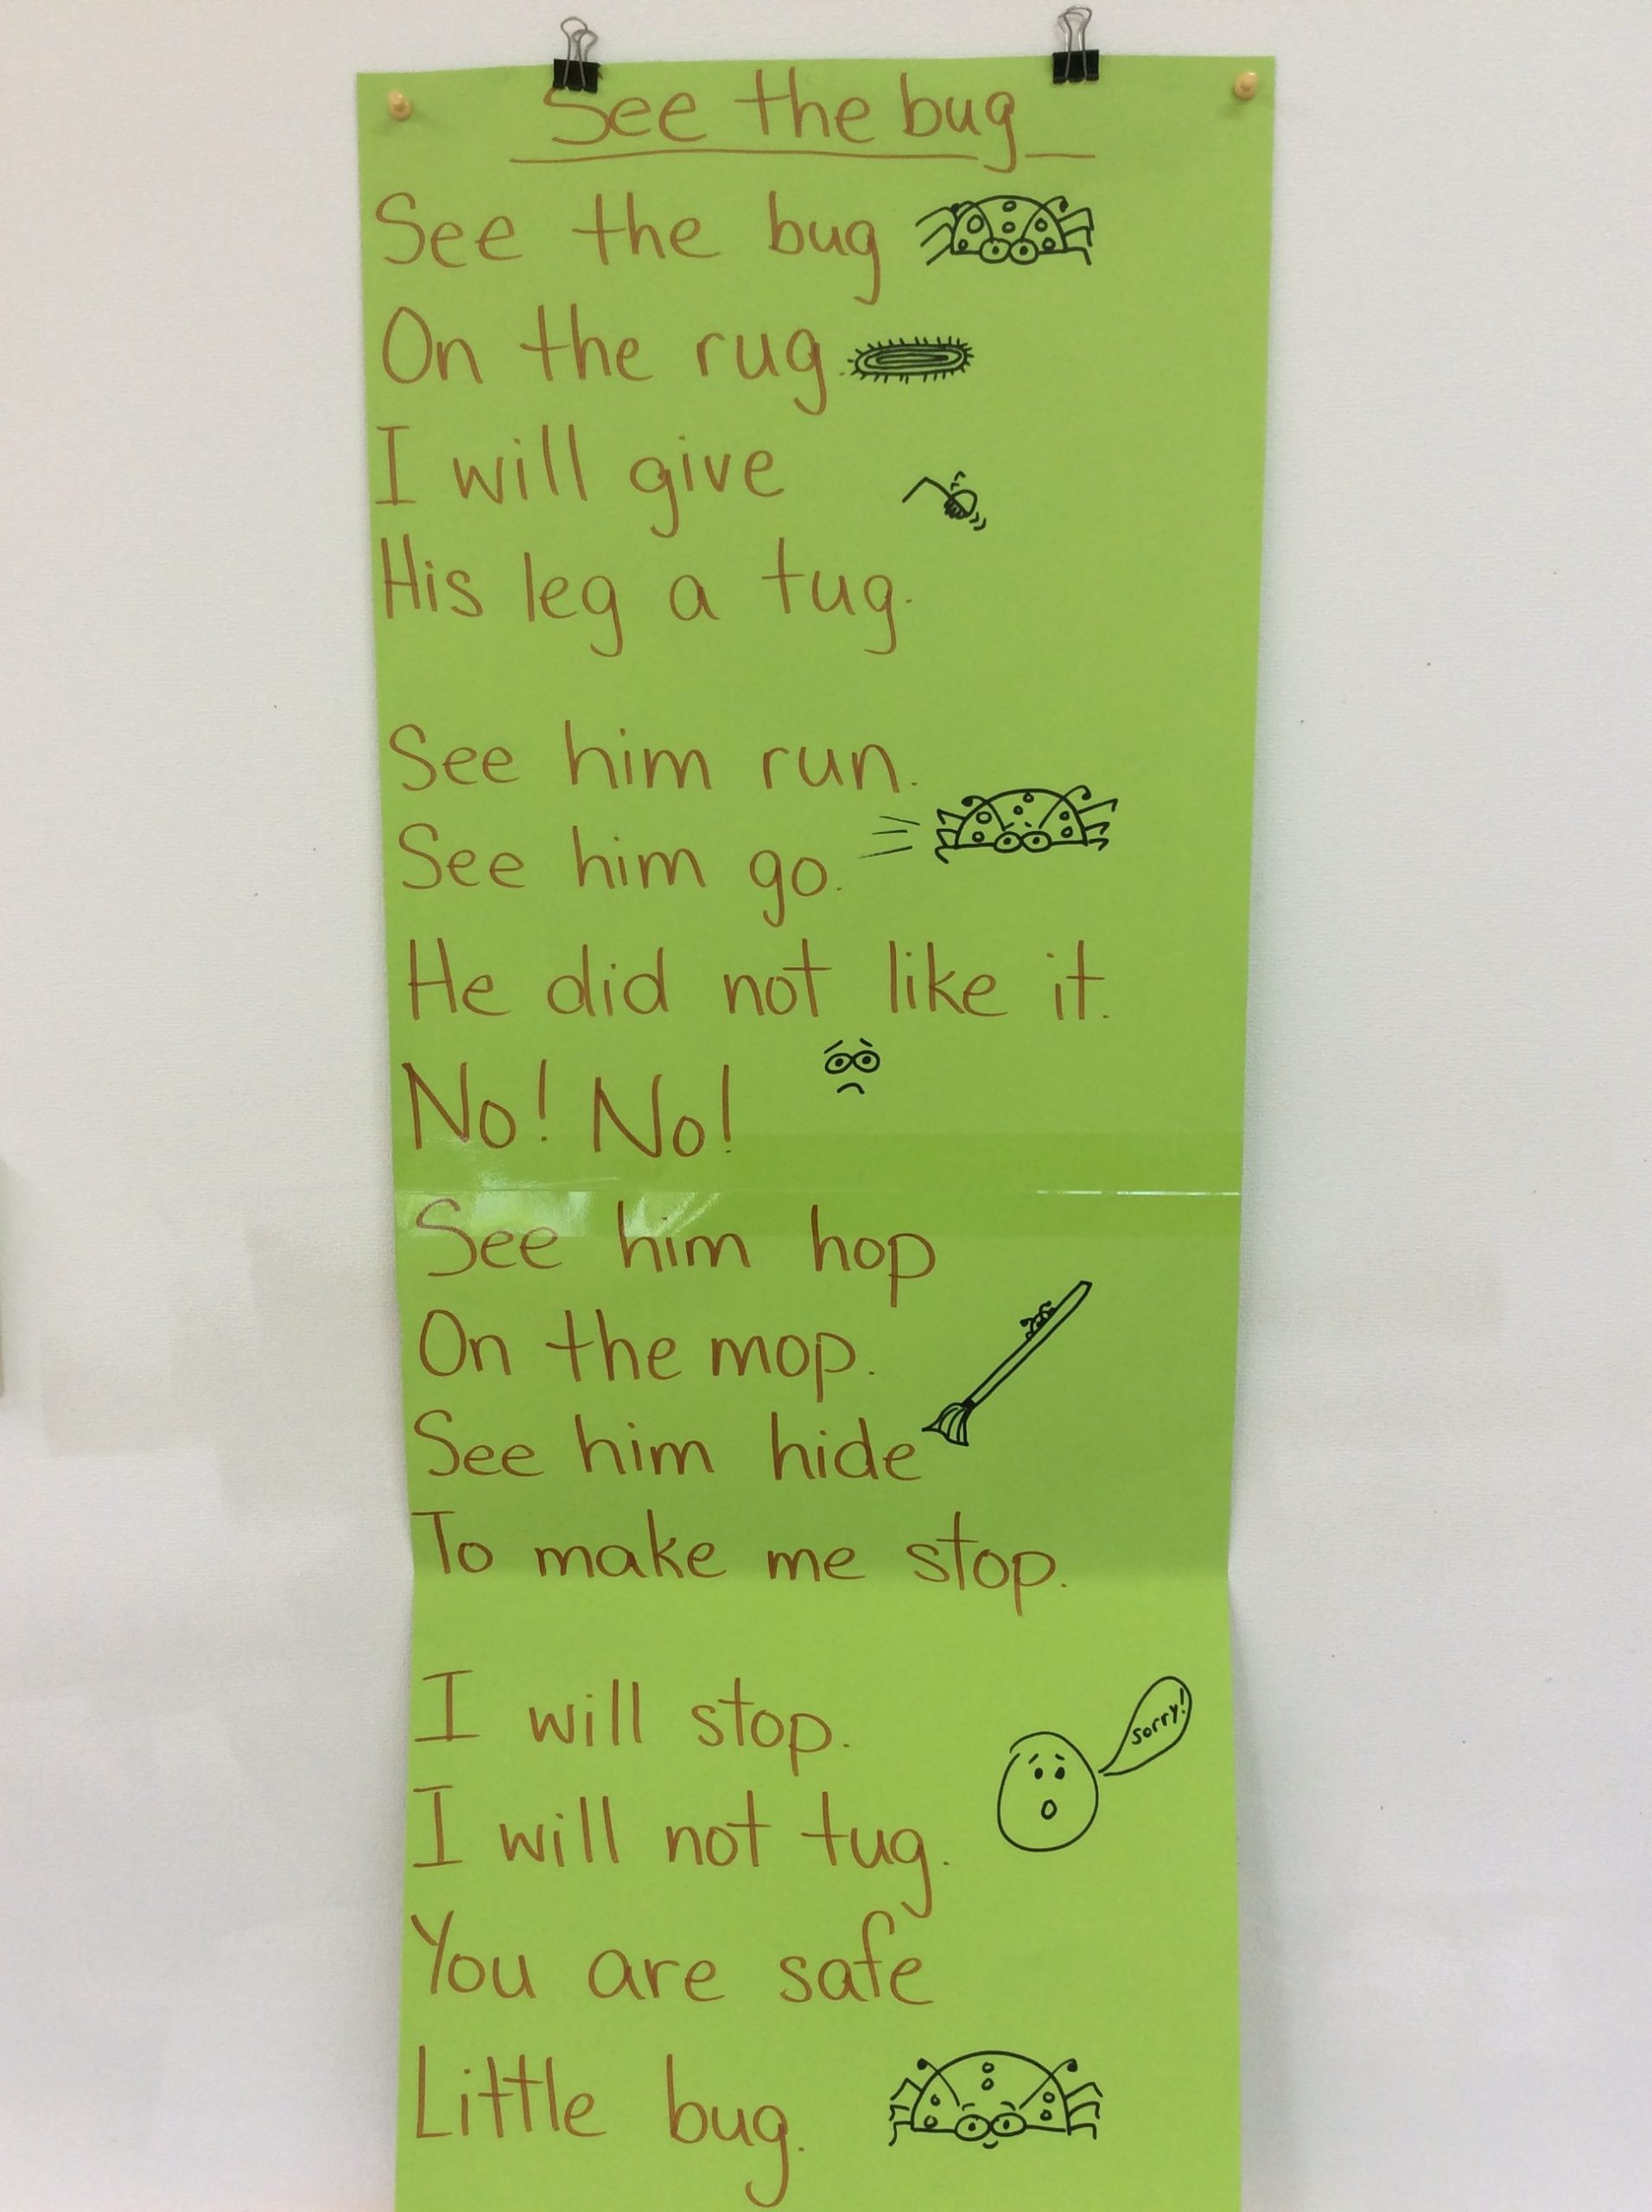 See the bug
See the bug
On the rug.
I will give
His leg a tug.
See him run.
See him go.
He did not like it.
No! No!
See him hop
On the mop.
See him hide
To make me stop.
I will stop.
sorry!
I will not tug.
You are safe
Little bug.